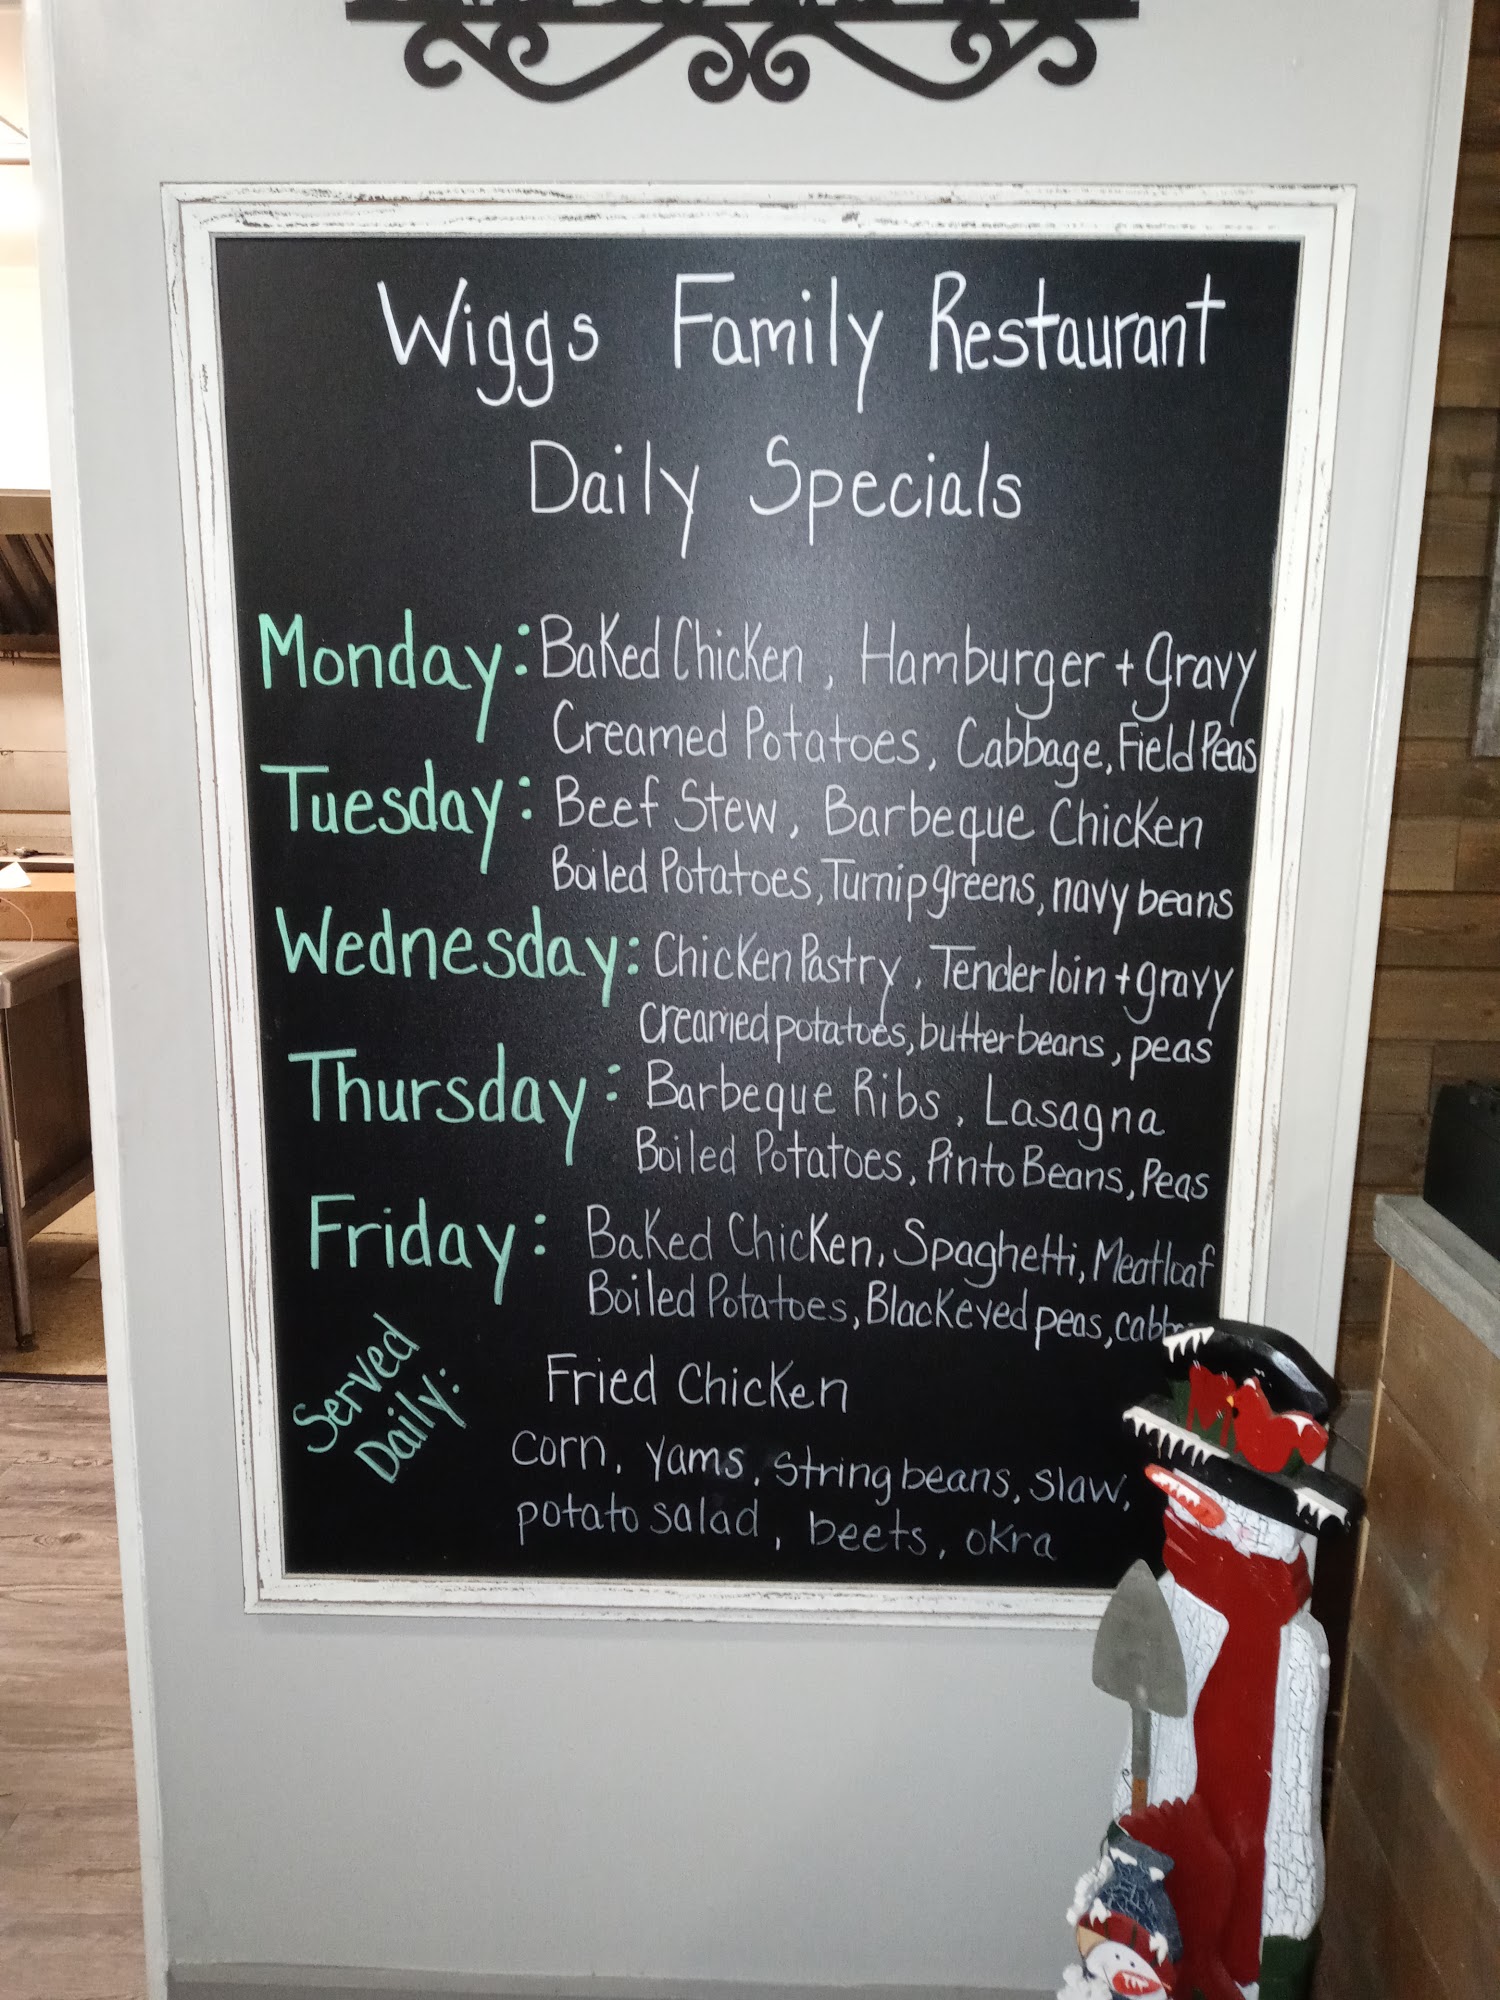 Wiggs Family Restaurant
Daily Specials
Monday: Baked Chicken, Hamburger + gravy
Creamed Potatoes, Cabbage, Field Peas
Tuesday: Beef Stew, Barbeque Chicken
Boiled Potatoes, Turnip greens, navy beans
Wednesday: Chicken Pastry, Tenderloin + gravy
creamed potatoes, butter beans, peas
Thursday: Barbeque Ribs, Lasagna
Boiled Potatoes, Pinto Beans, Peas
Friday: Baked Chicken, Spaghetti, Meatloaf
Boiled Potatoes, Blackeyed peas,
Served
Daily:
Fried Chicken
corn, yams, string beans, slaw,
potato salad, beets, okra